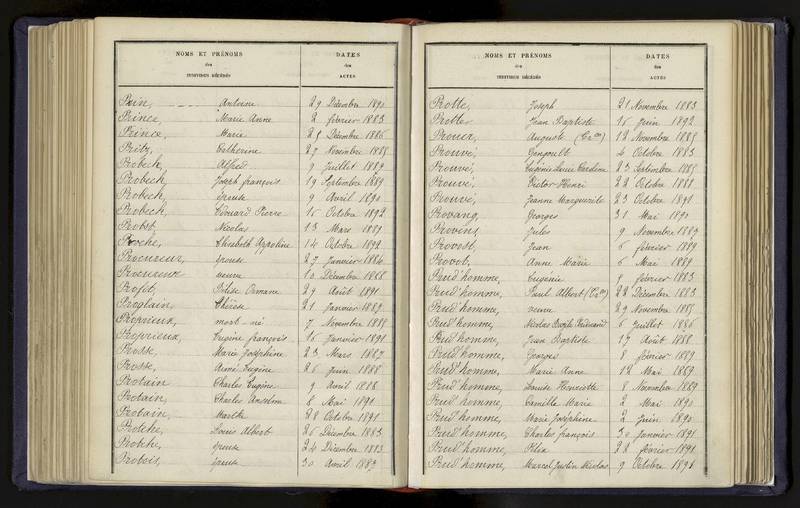 NOMS ET PRÉNOMS
des
INDIVIDUS DÉCÉDÉS
DATES
des
ACTES
Prin, Antoine 29 Décembre 1890
Prince, Marie Anne 2 février 1883
Prince, Marie 25 Décembre 1886
Catherine 27 Novembre 1885
Probeck, Alfred 9 Juillet 1889
Probeck, Joseph françois 19 Septembre 1889
Probeck, épouse 9 Avril 1890
Probeck, Edouard Pierre 15 Octobre 1892
Probst, Nicolas 13 Mars 1889
Proche, Elisabeth Appoline 14 Octobre 1892
Procureur, épouse 27 Janvier 1886
Procureur veuve 10 Décembre 1888
Profit, 29 Août 1891
Proglain, Thérèse 21 Janvier 1889
Proprieux, mort-né 7 Novembre 1885
Proprieux, Eugène françois 16 Janvier 1891
Prosse, Marie Joséphine 23 Mars 1887
Prosse, Aimé Eugène 26 Juin 1888
Protain Charles Eugène 9 Avril 1888
Protain, Charles Anselme 8 Mai 1891
Protain, Marthe 28 Octobre 1891
Protche, Louis Albert 26 Décembre 1883
Protche, épouse 24 Décembre 1883
Protois, épouse 30 Avril 1883
NOMS ET PRÉNOMS
des
INDIVIDUS DÉCÉDÉS
DATES
des
ACTES
Protte, Joseph 21 Novembre 1883
Protter Jean Baptiste 15 Juin 1892
Auguste 12 Novembre 1885
Prouvé, Gengoult 4 Octobre 1883
Prouvé, Eugénie 23 Septembre 1885
Prouvé, Victor Henri 22 Octobre 1888
Prouvé, Jeanne Marguerite 23 Octobre 1891
Provang, Georges 31 Mai 1890
Provins, Jules 9 Novembre 1889
Provost, Jean 6 février 1889
Provot, Anne Marie 6 Mai 1889
Prud'homme, Eugénie 8 février 1883
Prud'homme, Paul Albert 22 Décembre 1883
Prud'homme, veuve 29 Novembre 1885
Prud'homme, Nicolas 6 Juillet 1886
Prud'homme, Jean Baptiste 17 Août 1888
Prud'homme, Georges 8 février 1889
Prud'homme, Marie Anne 12 Mai 1889
Prud'homme, Louise Henriette 8 Novembre 1889
Prud'homme, Camille Marie 2 Mai 1890
Prud'homme, Marie Joséphine 2 Juin 1890
Prud'homme, Charles françois 30 Janvier 1891
Prud'homme, Félix 28 février 1891
Prud'homme, Marcel Justin Nicolas 9 Octobre 1891